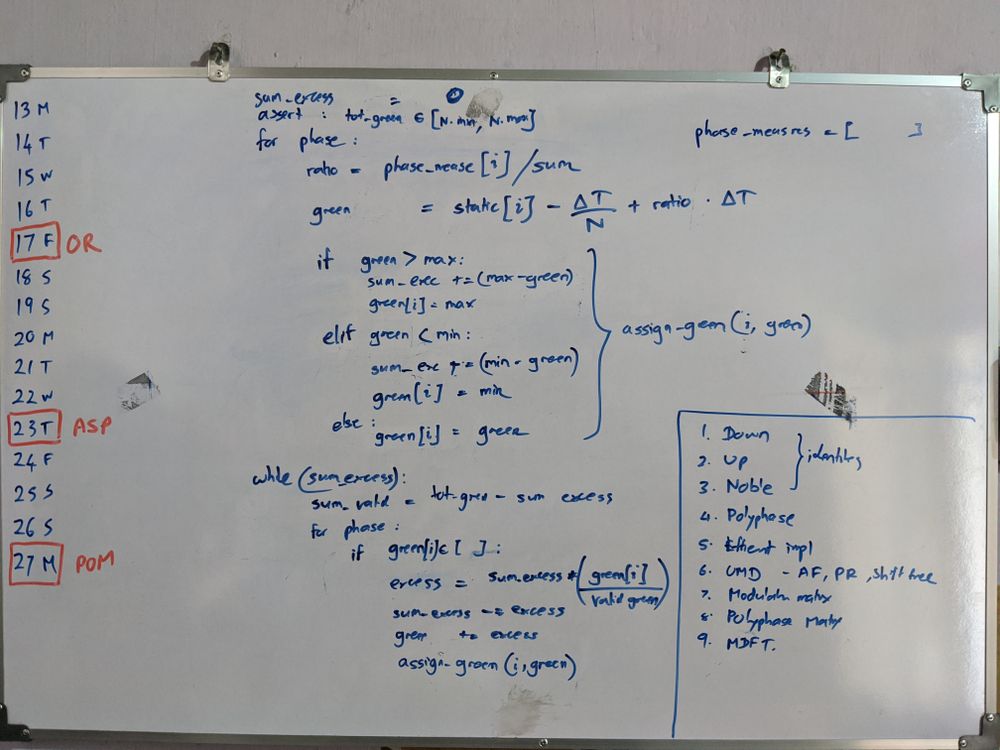 13 M
14 T
15 W
16 T
17 F OR
18 S
19 S
20 M
21 T
22 W
23 T ASP
24 F
25 S
26 S
27 M POM
sum_excess = 0
assert : tot_green ∈ [N.min, N.max]
for phase :
ratio = phase_mease[i] / sum
green = static[i] - ΔT/N + ratio · ΔT
if green > max:
sum_exec += (max-green)
green[i] = max
elif green < min:
sum_exc += (min - green)
green[i] = min
else :
green[i] = green
assign-green (i, green)
while (sum_excess):
sum_valid = tot-green - sum excess
for phase :
if green[i] ∈ [ ] :
excess = sum_excess * (green[i] / valid green)
sum_excess -= excess
green += excess
assign-green (i, green)
phase_measres = [ ]
1. Down
2. Up
3. Noble
identities
4. Polyphase
5. Efficient impl
6. UMD - AF, PR, Shift free
7. Modulatn matrix
8. Polyphase Matrix
9. MDFT.